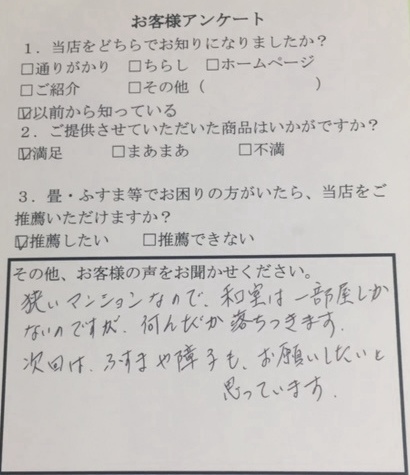 お客様アンケート
1．当店をどちらでお知りになりましたか？
□通りがかり □ちらし □ホームページ
□ご紹介 □その他（ ）
☑以前から知っている
2．ご提供させていただいた商品はいかがですか？
☑満足 □まあまあ □不満
3．畳・ふすま等でお困りの方がいたら、当店をご
推薦いただけますか？
☑推薦したい □推薦できない
その他、お客様の声をお聞かせください。
狭いマンションなので、和室は一部屋しか
ないのですが、何んだか落ちつきます．
次回は、ふすまや障子も、お願いしたいと
思っています．